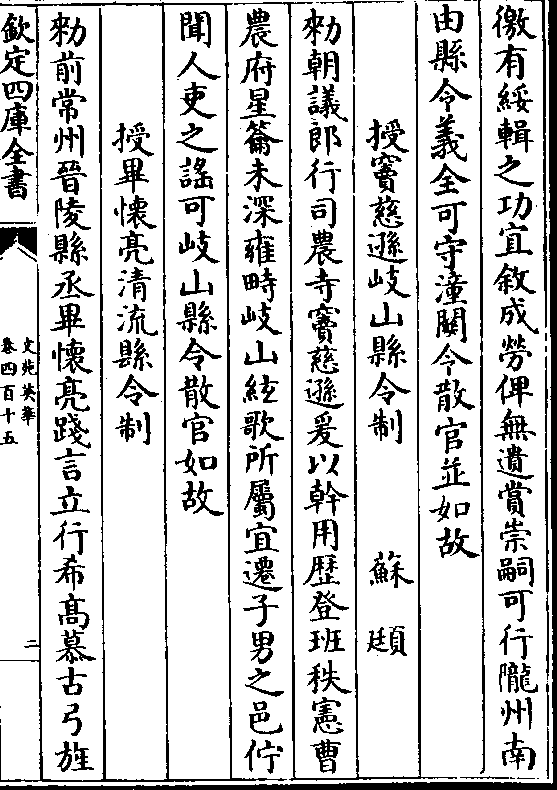 徼有綏輯之功宜敘成勞俾無遺賞崇嗣可行隴州南
由縣令義全可守潼關令散官並如故
授竇慈遜岐山縣令制 蘇頲
勑朝議郎行司農寺竇慈遜爰以幹用歴登班秩憲曹
農府星籥未深雍畤岐山絃歌所屬宜遷子男之邑佇
聞人吏之謠可岐山縣令散官如故
授畢懷亮清流縣令制
勑前常州晉陵縣丞畢懷亮踐言立行希髙慕古弓旌
欽定四庫全書
文苑英華
卷四百十五
二